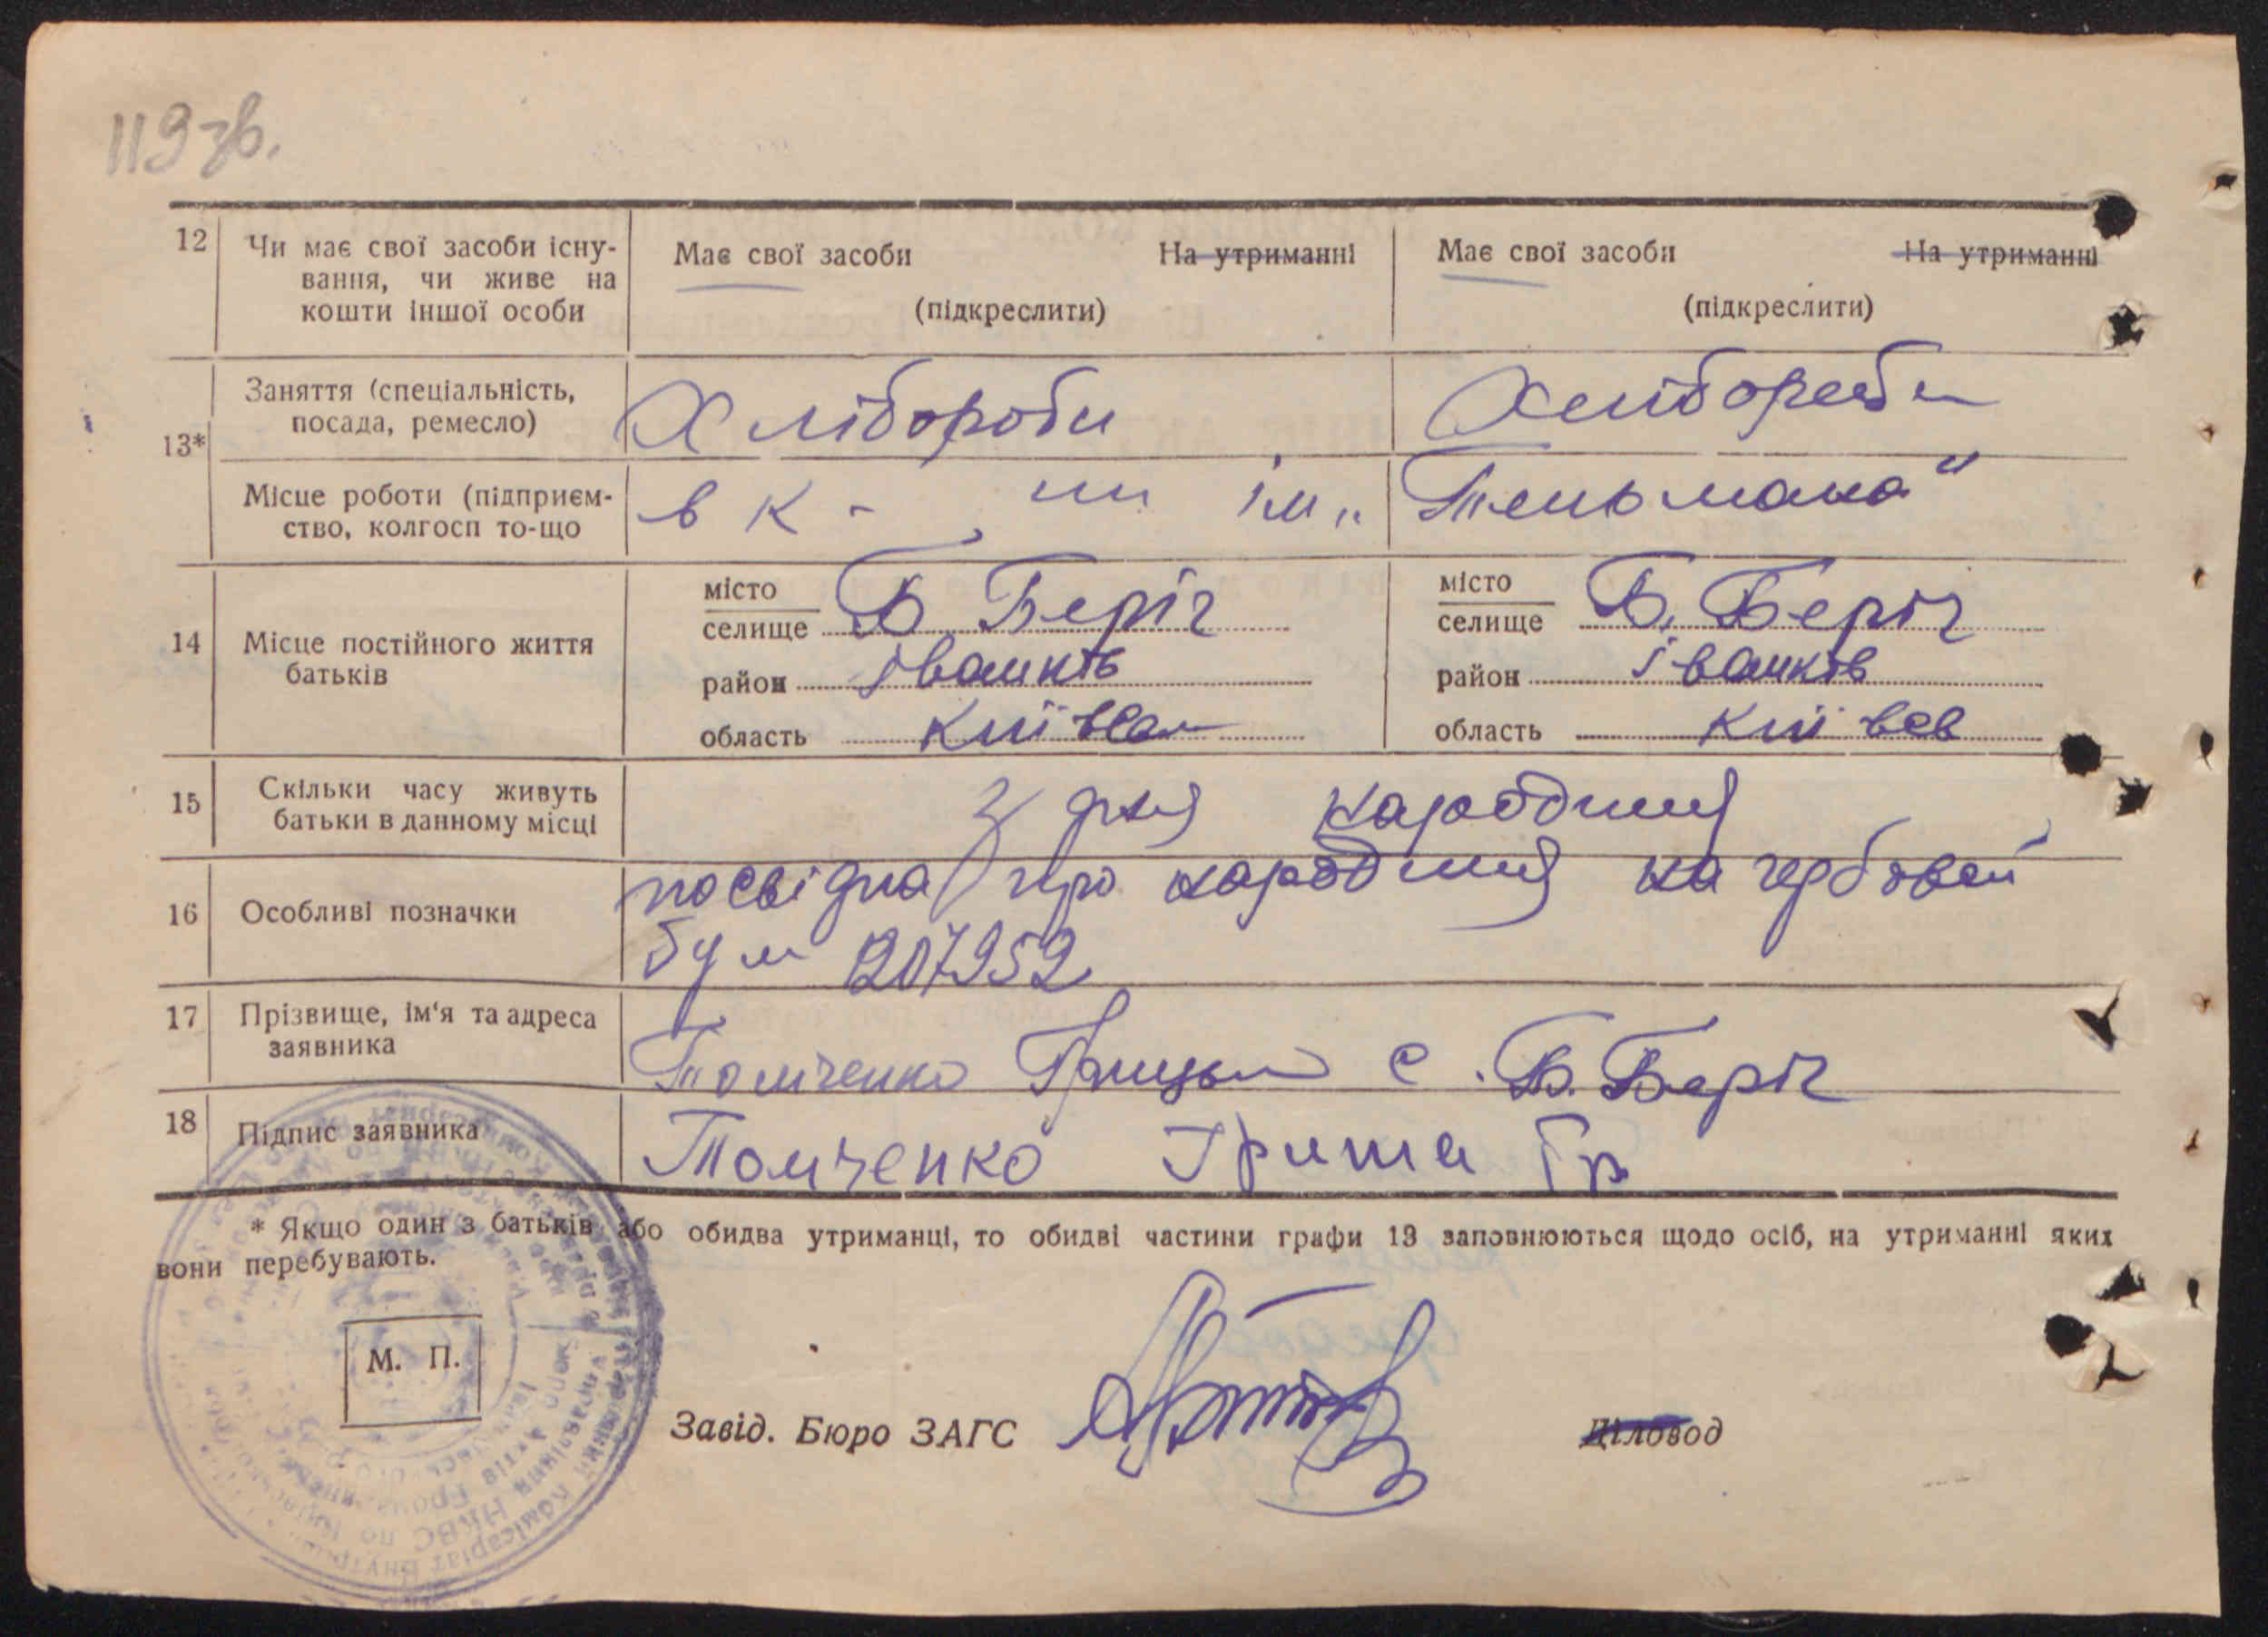 119 зв.
12 Чи має свої засоби існу-
вання, чи живе на
кошти іншої особи
Має свої засоби На утриманні
(підкреслити)
Має свої засоби На утриманні
(підкреслити)
13*
Заняття (спеціальність,
посада, ремесло)
Хлібороби
Хлібороби
Місце роботи (підприєм-
ство, колгосп то-що
в к - ім „Тельмана"
14 Місце постійного життя
батьків
місто
селище Б. Беріг
район Іванків
область Київськ
місто
селище Б. Беріг
район Іванків
область Київсв
15 Скільки часу живуть
батьки в данному місці
З дня народження
16 Особливі позначки
посвідка про народження на гербовой
бум 207952
17 Прізвище, ім'я та адреса
заявника
Томченко Грицько с. Б. Беріг
18 Підпис заявника
Томченко Гриша Гр
* Якщо один з батьків або обидва утриманці, то обидві частини графи 13 заповнюються щодо осіб, на утриманні яких
вони перебувають.
М. П.
Завід. Бюро ЗАГС
Діловод